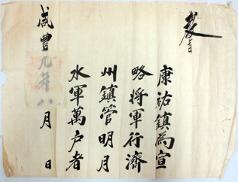 教旨
康祐鎮爲宣
略將軍行濟
州鎮管明月
水軍萬戶者
咸豐九年八月 日